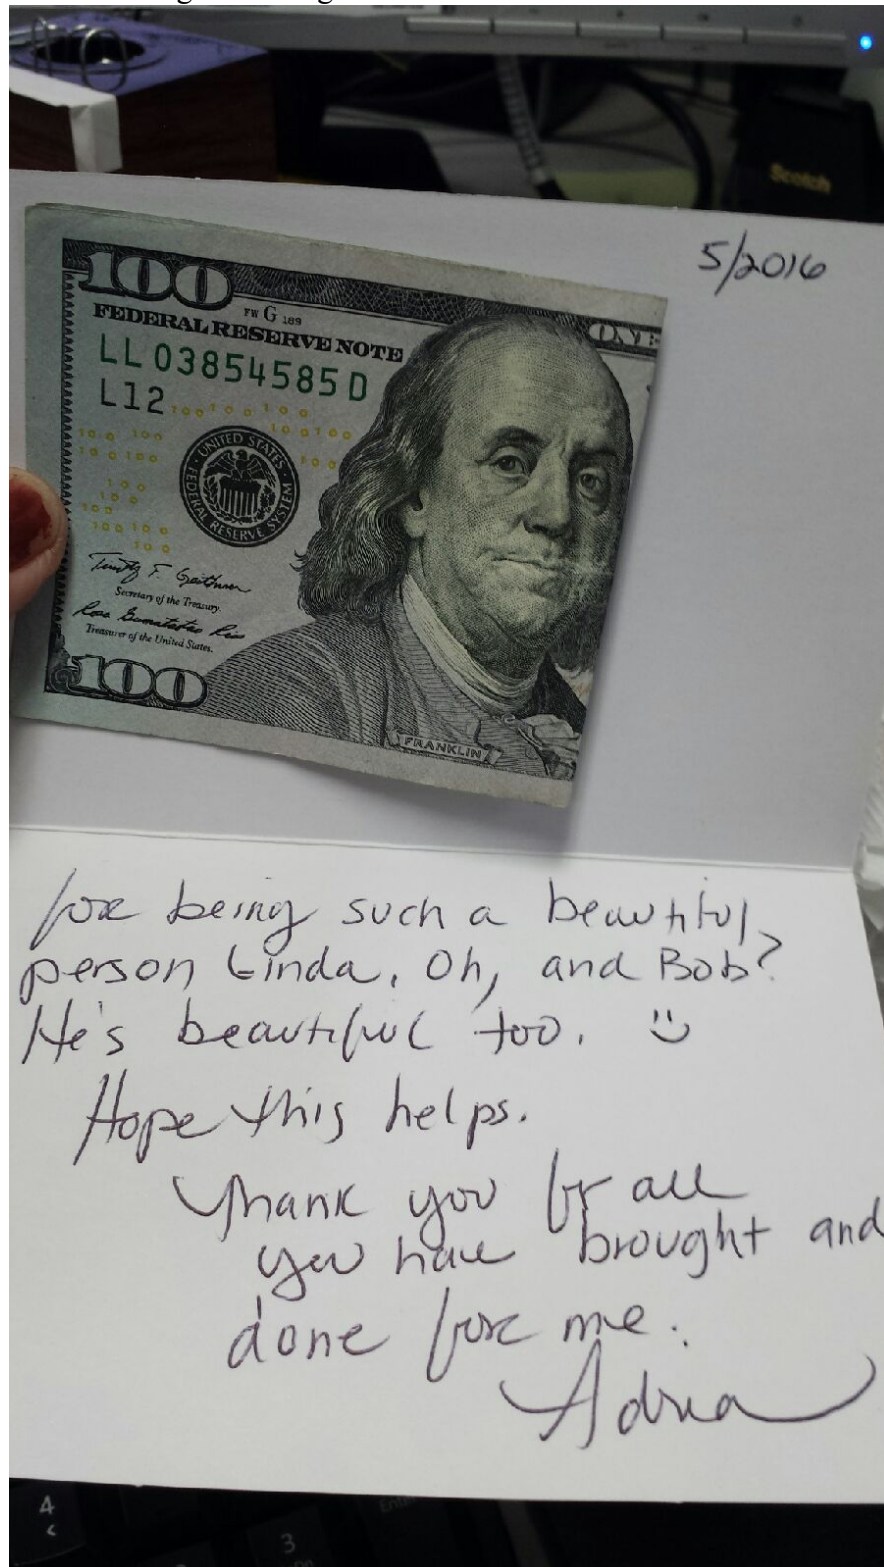 Scotch
5/2016
100
FW G 189
FEDERAL RESERVE NOTE
ONE
LL 03854585 D
L12
UNITED STATES
FEDERAL RESERVE SYSTEM
Secretary of the Treasury.
Treasurer of the United States.
100
FRANKLIN
for being such a beautiful
person Linda. Oh, and Bob?
He's beautiful too. :)
Hope this helps.
Thank you for all
you have brought and
done for me.
Adria
4
3
Enter